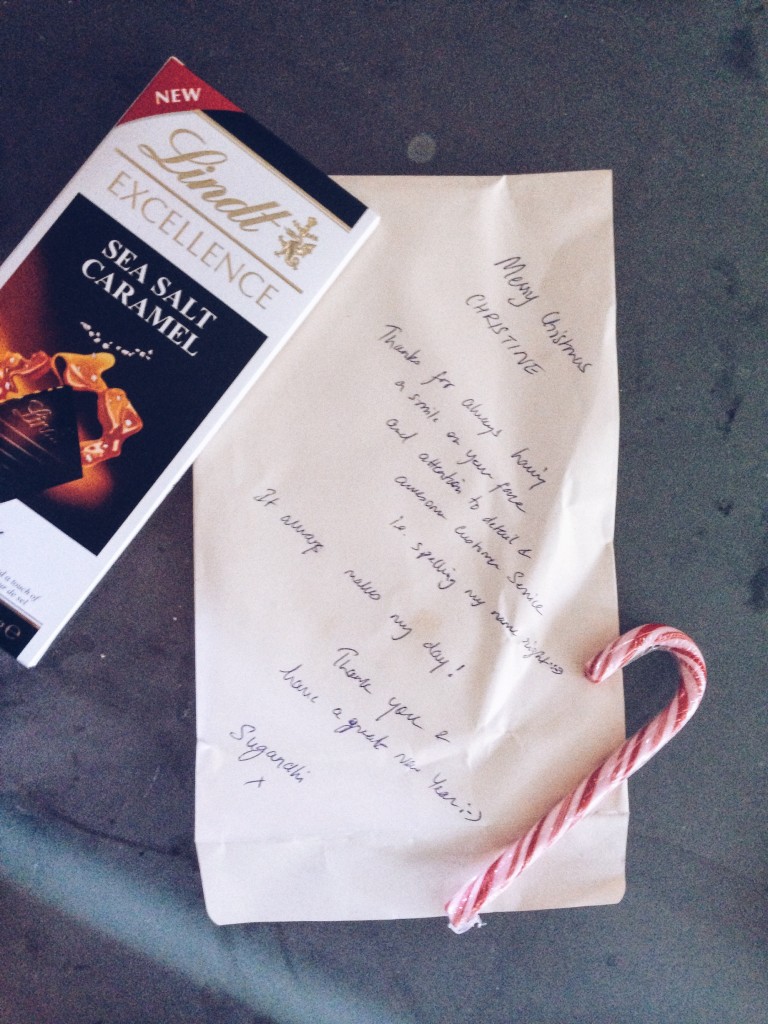 NEW
Lindt
EXCELLENCE
SEA SALT
CARAMEL
Merry Christmas
CHRISTINE
Thanks for always having
a smile on your face
and attention to detail &
awesome customer service
i.e. spelling my name right :)
It always makes my day!
Thank you &
have a great New Year :-)
Sugandhi
x